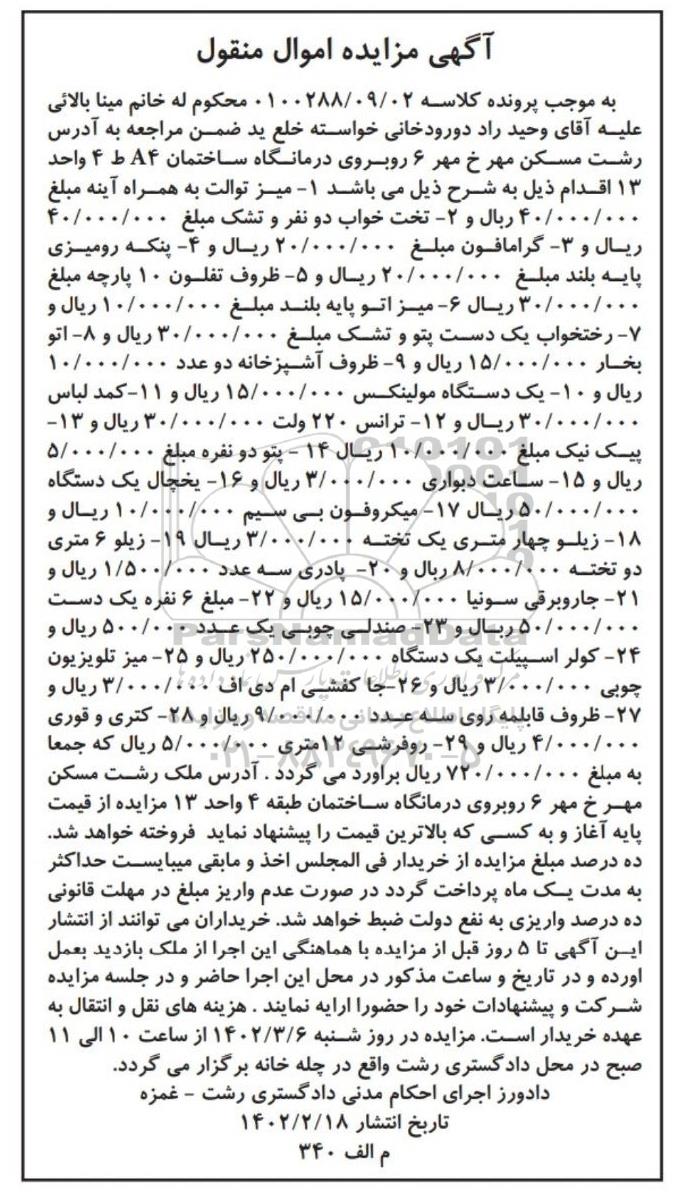 آگهی مزایده اموال منقول
به موجب پرونده کلاسه ۰۱۰۰۲۸۸/۰۹/۰۲ محکوم له خانم مینا بالائی
علیه آقای وحید راد دورودخانی خواسته خلع ید ضمن مراجعه به آدرس
رشت مسکن مهر خ مهر ۶ روبروی درمانگاه ساختمان A۴ ط ۴ واحد
۱۳ اقدام ذیل به شرح ذیل می باشد ۱- میز توالت به همراه آینه مبلغ
۴۰/۰۰۰/۰۰۰ ریال و ۲- تخت خواب دو نفر و تشک مبلغ ۴۰/۰۰۰/۰۰۰
ریال و ۳- گرامافون مبلغ ۲۰/۰۰۰/۰۰۰ ریال و ۴- پنکه رومیزی
پایه بلند مبلغ ۲۰/۰۰۰/۰۰۰ ریال و ۵- ظروف تفلون ۱۰ پارچه مبلغ
۳۰/۰۰۰/۰۰۰ ریال ۶- میز اتو پایه بلند مبلغ ۱۰/۰۰۰/۰۰۰ ریال و
۷- رختخواب یک دست پتو و تشک مبلغ ۳۰/۰۰۰/۰۰۰ ریال و ۸- اتو
بخار ۱۵/۰۰۰/۰۰۰ ریال و ۹- ظروف آشپزخانه دو عدد ۱۰/۰۰۰/۰۰۰
ریال و ۱۰- یک دستگاه مولینکس ۱۵/۰۰۰/۰۰۰ ریال و ۱۱-کمد لباس
۳۰/۰۰۰/۰۰۰ ریال و ۱۲- ترانس ۲۲۰ ولت ۳۰/۰۰۰/۰۰۰ ریال و ۱۳-
پیک نیک مبلغ ۱۰/۰۰۰/۰۰۰ ریال ۱۴ - پتو دو نفره مبلغ ۵/۰۰۰/۰۰۰
ریال و ۱۵- ساعت دیواری ۳/۰۰۰/۰۰۰ ریال و ۱۶- یخچال یک دستگاه
۵۰/۰۰۰/۰۰۰ ریال ۱۷- میکروفون بی سیم ۱۰/۰۰۰/۰۰۰ ریال و
۱۸- زیلو چهار متری یک تخته ۳/۰۰۰/۰۰۰ ریال ۱۹- زیلو ۶ متری
دو تخته ۸/۰۰۰/۰۰۰ ریال و ۲۰- پادری سه عدد ۱/۵۰۰/۰۰۰ ریال و
۲۱- جاروبرقی سونیا ۱۵/۰۰۰/۰۰۰ ریال و ۲۲- مبلغ ۶ نفره یک دست
۵۰/۰۰۰/۰۰۰ ریال و ۲۳- صندلی چوبی یک عدد ۵۰۰/۰۰۰ ریال و
۲۴- کولر اسپیلت یک دستگاه ۲۵۰/۰۰۰/۰۰۰ ریال و ۲۵- میز تلویزیون
چوبی ۳/۰۰۰/۰۰۰ ریال و ۲۶-جا کفشی ام دی اف ۳/۰۰۰/۰۰۰ ریال و
۲۷- ظروف قابلمه روی سه عدد ۹/۰۰۰/۰۰۰ ریال و ۲۸- کتری و قوری
۴/۰۰۰/۰۰۰ ریال و ۲۹- روفرشی ۱۲متری ۵/۰۰۰/۰۰۰ ریال که جمعا
به مبلغ ۷۲۰/۰۰۰/۰۰۰ ریال براورد می گردد . آدرس ملک رشت مسکن
مهر خ مهر ۶ روبروی درمانگاه ساختمان طبقه ۴ واحد ۱۳ مزایده از قیمت
پایه آغاز و به کسی که بالاترین قیمت را پیشنهاد نماید فروخته خواهد شد.
ده درصد مبلغ مزایده از خریدار فی المجلس اخذ و مابقی میبایست حداکثر
به مدت یک ماه پرداخت گردد در صورت عدم واریز مبلغ در مهلت قانونی
ده درصد واریزی به نفع دولت ضبط خواهد شد. خریداران می توانند از انتشار
این آگهی تا ۵ روز قبل از مزایده با هماهنگی این اجرا از ملک بازدید بعمل
اورده و در تاریخ و ساعت مذکور در محل این اجرا حاضر و در جلسه مزایده
شرکت و پیشنهادات خود را حضورا ارایه نمایند . هزینه های نقل و انتقال به
عهده خریدار است. مزایده در روز شنبه ۱۴۰۲/۳/۶ از ساعت ۱۰ الی ۱۱
صبح در محل دادگستری رشت واقع در چله خانه برگزار می گردد.
دادورز اجرای احکام مدنی دادگستری رشت - غمزه
تاریخ انتشار ۱۴۰۲/۲/۱۸
م الف ۳۴۰
ParsNamadData
۰۲۱-۸۸۳۴۹۶۷۰-۵